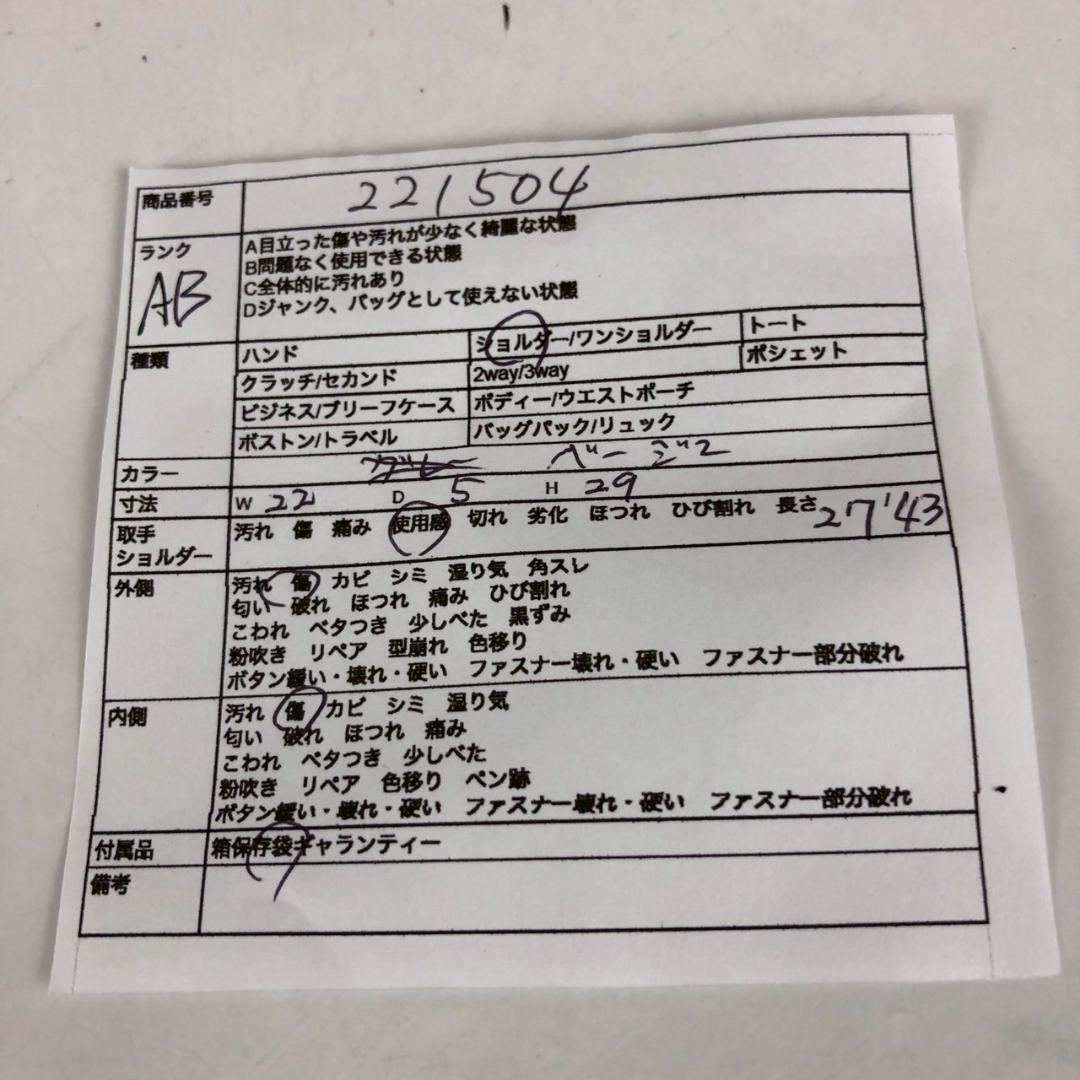 商品番号 221504
ランク AB
A目立った傷や汚れが少なく綺麗な状態
B問題なく使用できる状態
C全体的に汚れあり
Dジャンク、バッグとして使えない状態
種類 ハンド ショルダー/ワンショルダー トート
クラッチ/セカンド 2way/3way ポシェット
ビジネス/ブリーフケース ボディー/ウエストポーチ
ボストン/トラベル バッグパック/リュック
カラー グレー ベージュ
寸法 W 22 D 5 H 29
取手 汚れ 傷 痛み 使用感 切れ 劣化 ほつれ ひび割れ 長さ 27'43
ショルダー
外側 汚れ 傷 カビ シミ 湿り気 角スレ
匂い 破れ ほつれ 痛み ひび割れ
こわれ ベタつき 少しべた 黒ずみ
粉吹き リペア 型崩れ 色移り
ボタン緩い・壊れ・硬い ファスナー壊れ・硬い ファスナー部分破れ
内側 汚れ 傷 カビ シミ 湿り気
匂い 破れ ほつれ 痛み
こわれ ベタつき 少しべた
粉吹き リペア 色移り ペン跡
ボタン緩い・壊れ・硬い ファスナー壊れ・硬い ファスナー部分破れ
付属品 箱保存袋ギャランティー
備考